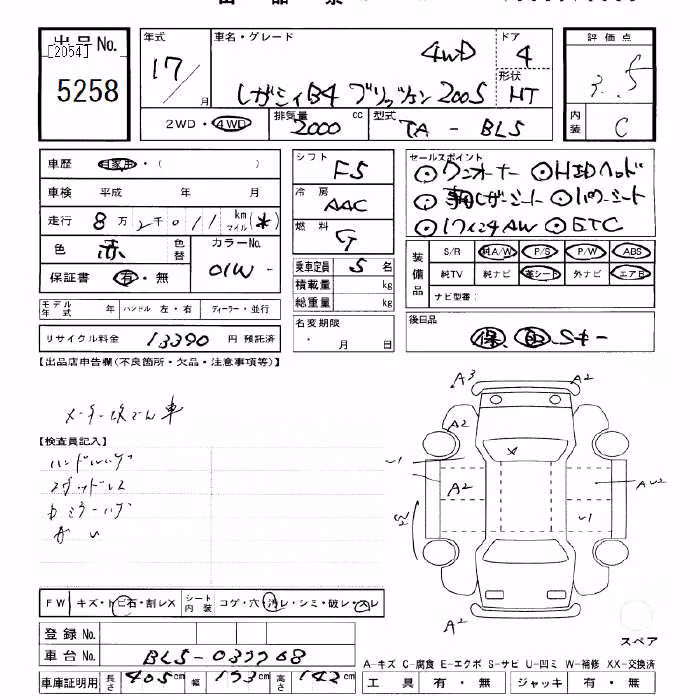 出品No.
[2054]
5258
年式
17/
月
車名・グレード
4WD
レガシィB4 ブリッツェン2005
ドア
4
形状
HT
2WD・4WD
排気量
2000
cc
型式
TA - BL5
評価点
3.5
内装
C
車歴
自家用・( )
車検
平成 年 月
走行
8万2千011
km
マイル
(*)
色
赤
色替
カラーNo.
01W -
保証書
有・無
モデル年式
年
ハンドル 左・右
ディーラー・並行
リサイクル料金
13390
円 預託済
シフト
F5
冷房
AAC
燃料
G
乗車定員
5
名
積載量
kg
総重量
kg
名変期限
・ 月 日
セールスポイント
◎ワンオーナー ◎HIDヘッド
◎ レザーシート ◎パワーシート
◎17インチAW ◎ETC
装備品
S/R
純A/W
P/S
P/W
ABS
純TV
純ナビ
革シート
外ナビ
エアB
ナビ型番:
後日品
保
キー
【出品店申告欄(不良箇所・欠品・注意事項等)】
メーター改ざん車
【検査員記入】
FW
キズ・トビ石・割レX
シート内装
コゲ・穴・汚レ・シミ・破レ・スレ
登録No.
車台No.
車庫証明用
長さ
405
cm
幅
173
cm
高さ
142
cm
A3
A2
A2
A2
A2
スペア
A-キズ C-腐食 E-エクボ S-サビ U-凹ミ W-補修 XX-交換済
工具
有・無
ジャッキ
有・無